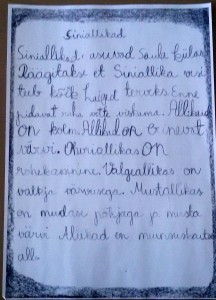 Siniallikad
Siniallikad asuvad Saula külas
Räägitakse et Siniallika vesi
teeb kõik haiged terveks. Enne
pidavat raha vette viskama. Allikaid
on kolm. Allikal on erinevat
värvi. on
rohekassinine. Valgeallikas on
valkja värvusega. Mustallikas
on mudase põhjaga ja musta
värvi Allikad on
all.